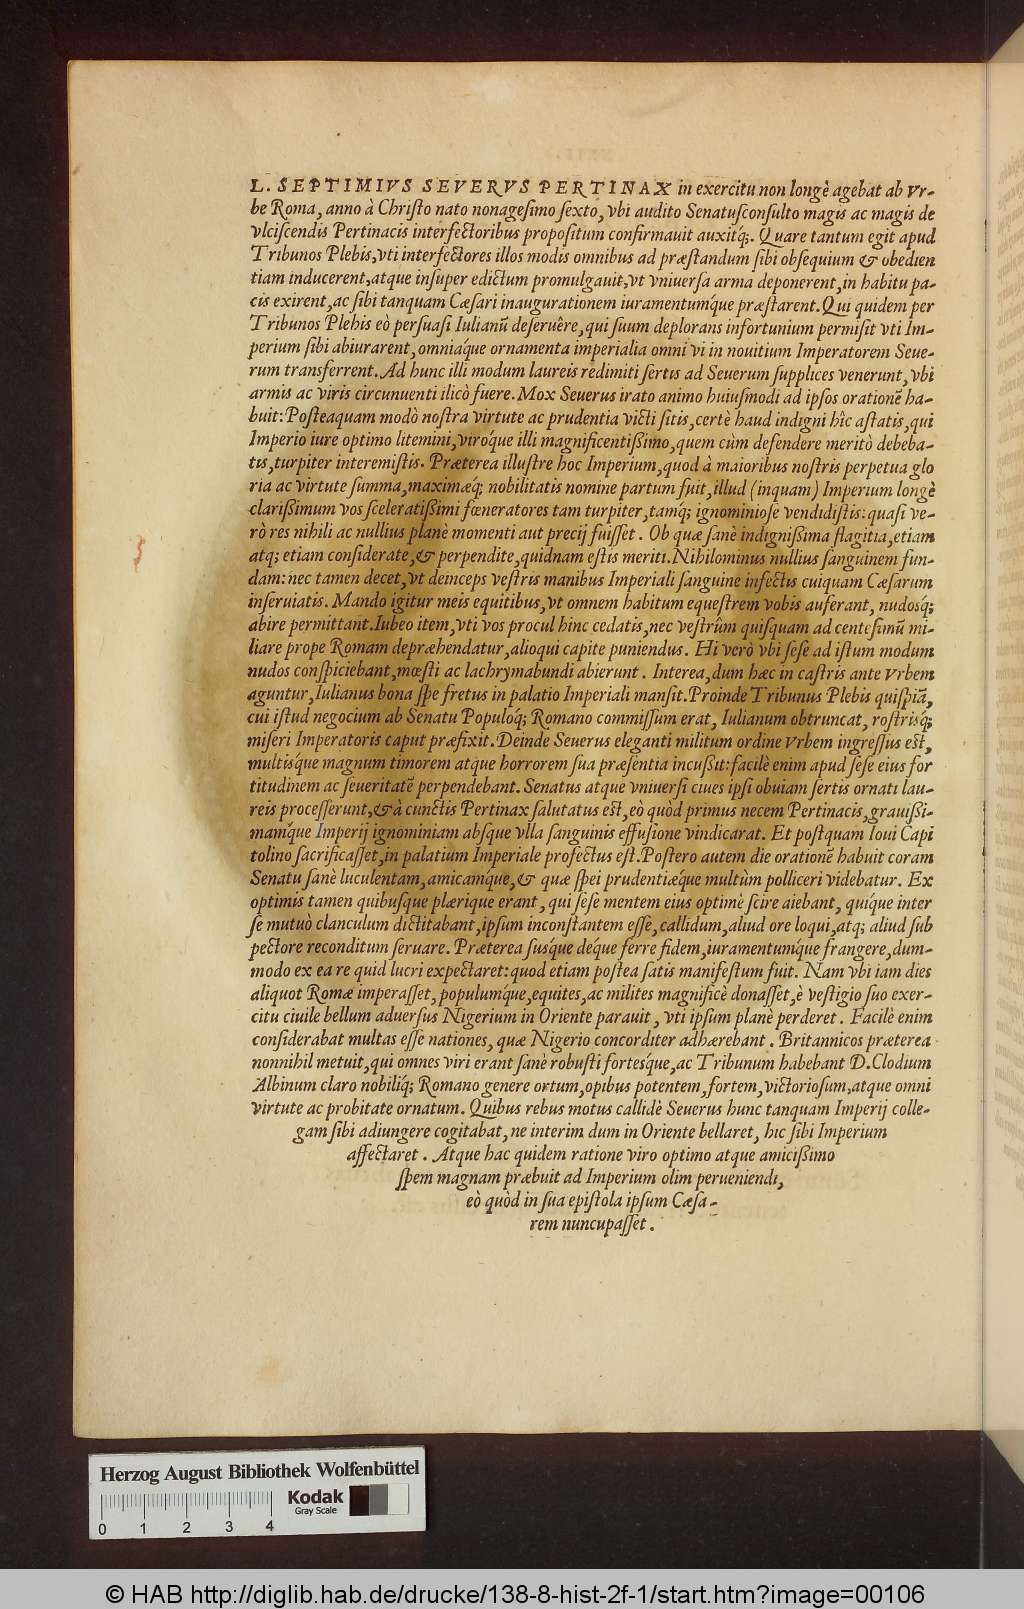 L. SEPTIMIVS SEVERVS PERTINAX in exercitu non longè agebat ab Vr-
be Roma, anno à Chriſto nato nonageſimo ſexto, vbi audito Senatuſconſulto magis ac magis de
vlciſcendis Pertinacis interfectoribus propoſitum confirmauit auxitq́;. Quare tantum egit apud
Tribunos Plebis, vti interfectores illos modis omnibus ad præſtandum ſibi obſequium & obedien
tiam inducerent, atque inſuper edictum promulgauit, vt vniuerſa arma deponerent, in habitu pa-
cis exirent, ac ſibi tanquam Cæſari inaugurationem iuramentumq́ue præſtarent. Qui quidem per
Tribunos Plebis eò perſuaſi Iulianũ deſeruêre, qui ſuum deplorans infortunium permiſit vti Im-
perium ſibi abiurarent, omniaq́ue ornamenta imperialia omni vi in nouitium Imperatorem Seue-
rum transferrent. Ad hunc illi modum laureis redimiti ſertis ad Seuerum ſupplices venerunt, vbi
armis ac viris circuuenti ilicò fuere. Mox Seuerus irato animo huiuſmodi ad ipſos orationẽ ha-
buit: Poſteaquam modò noſtra virtute ac prudentia victi ſitis, certè haud indigni hîc aſtatis, qui
Imperio iure optimo litemini, viroq́ue illi magnificentißimo, quem cùm defendere meritò debeba-
tis, turpiter interemiſtis. Præterea illuſtre hoc Imperium, quod à maioribus noſtris perpetua glo
ria ac virtute ſumma, maximæq́; nobilitatis nomine partum fuit, illud (inquam) Imperium longè
clarißimum vos ſceleratißimi fœneratores tam turpiter, tamq́; ignominioſe vendidiſtis: quaſi ve-
rò res nihili ac nullius planè momenti aut precij fuiſſet. Ob quæ ſanè indigniſsima flagitia, etiam
atq; etiam conſiderate, & perpendite, quidnam eſtis meriti. Nihilominus nullius ſanguinem fun-
dam: nec tamen decet, vt deinceps veſtris manibus Imperiali ſanguine infectis cuiquam Cæſarum
inſeruiatis. Mando igitur meis equitibus, vt omnem habitum equeſtrem vobis auferant, nudosq́;
abire permittant. Iubeo item, vti vos procul hinc cedatis, nec veſtrûm quiſquam ad centeſimũ mi-
liare prope Romam depræhendatur, alioqui capite puniendus. Hi verò vbi ſeſe ad iſtum modum
nudos conſpiciebant, mœſti ac lachrymabundi abierunt. Interea, dum hæc in caſtris ante Vrbem
aguntur, Iulianus bona ſpe fretus in palatio Imperiali manſit. Proinde Tribunus Plebis quiſpiã,
cui iſtud negocium ab Senatu Populoq́; Romano commiſſum erat, Iulianum obtruncat, roſtrisq́;
miſeri Imperatoris caput præfixit. Deinde Seuerus eleganti militum ordine Vrbem ingreſſus eſt,
multisque magnum timorem atque horrorem ſua præſentia incußit: facilè enim apud ſeſe eius for
titudinem ac ſeueritatẽ perpendebant. Senatus atque vniuerſi ciues ipſi obuiam ſertis ornati lau-
reis proceſſerunt, & à cunctis Pertinax ſalutatus eſt, eò quòd primus necem Pertinacis, grauißi-
mamq́ue Imperij ignominiam absque vlla ſanguinis effuſione vindicarat. Et poſtquam Ioui Capi
tolino ſacrificaſſet, in palatium Imperiale profectus eſt. Poſtero autem die orationẽ habuit coram
Senatu ſanè luculentam, amicamq́ue, & quæ ſpei prudentiæq́ue multùm polliceri videbatur. Ex
optimis tamen quibuſque plærique erant, qui ſeſe mentem eius optimè ſcire aiebant, quiq́ue inter
ſe mutuò clanculum dictitabant, ipſum inconſtantem eſſe, callidum, aliud ore loqui, atq; aliud ſub
pectore reconditum ſeruare. Præterea ſuſq́ue deq́ue ferre fidem, iuramentumq́ue frangere, dum-
modo ex ea re quid lucri expectaret: quod etiam poſtea ſatis manifeſtum fuit. Nam vbi iam dies
aliquot Romæ imperaſſet, populumq́ue, equites, ac milites magnificè donaſſet, è veſtigio ſuo exer-
citu ciuile bellum aduerſus Nigerium in Oriente parauit, vti ipſum planè perderet. Facilè enim
conſiderabat multas eſſe nationes, quæ Nigerio concorditer adhærebant. Britannicos præterea
nonnihil metuit, qui omnes viri erant ſanè robuſti fortesq́ue, ac Tribunum habebant D. Clodium
Albinum claro nobiliq́; Romano genere ortum, opibus potentem, fortem, victorioſum, atque omni
virtute ac probitate ornatum. Quibus rebus motus callidè Seuerus hunc tanquam Imperij colle-
gam ſibi adiungere cogitabat, ne interim dum in Oriente bellaret, hic ſibi Imperium
affectaret. Atque hac quidem ratione viro optimo atque amicißimo
ſpem magnam præbuit ad Imperium olim perueniendi,
eò quòd in ſua epiſtola ipſum Cæſa-
rem nuncupaſſet.
Herzog August Bibliothek Wolfenbüttel
Kodak
Gray Scale
0 1 2 3 4
© HAB http://diglib.hab.de/drucke/138-8-hist-2f-1/start.htm?image=00106